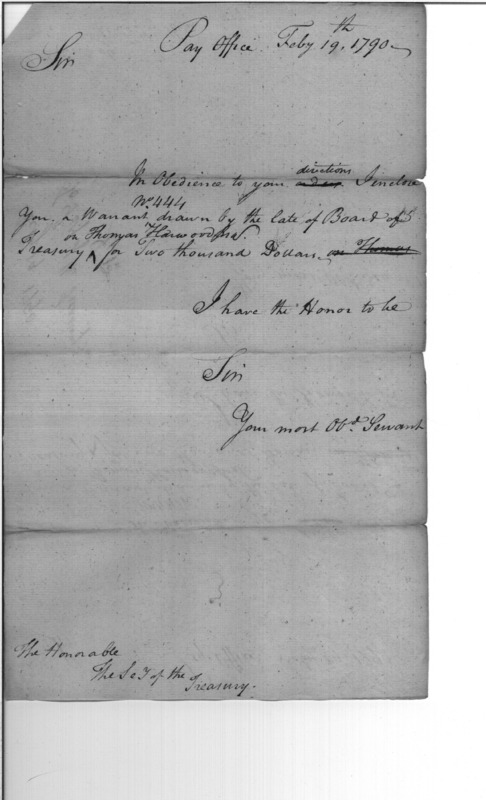 Pay Office Feby 19th. 1790
Sir
In Obedience to your directions I inclose
No. 444
You a Warrant drawn by the late of Board of
on Thomas Harwood
Treasury ^ for Two thousand Dollars. on Thomas
I have the Honor to be
Sir
Your most Obd. Servant
The Honorable
The Sey of the
Treasury.